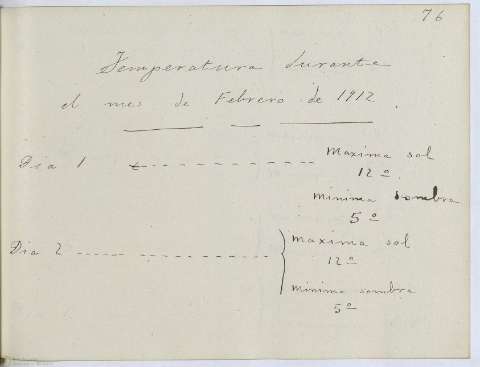 76
Temperatura durante
el mes de Febrero de 1912.
Dia 1 Maxima sol
12º
Minima sombra
5º
Dia 2 Maxima sol
12º
Minima sombra
5º